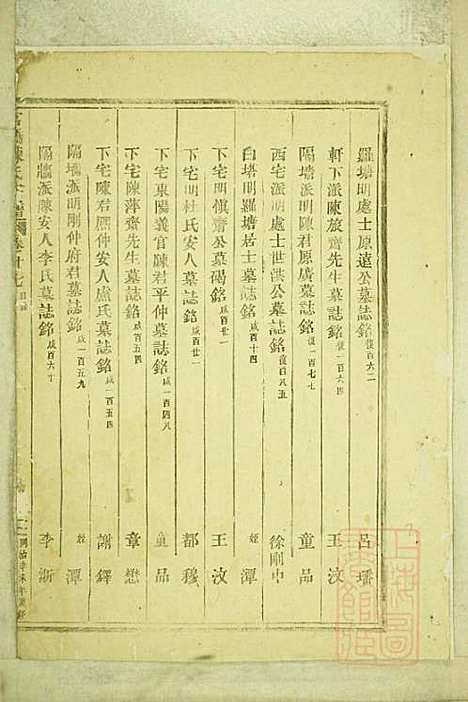 羅塘明處士原遠公墓誌銘 復百六二 呂璠
軒下派陳旅齋先生墓誌銘 復一百六四 王汶
隔塘派明陳君原廣墓誌銘 復一百七七 童品
西宅派明處士世洪公墓誌銘 復百八五 徐剛中
白塔明羅塘居士墓誌銘 咸百十四 姪潭
下宅明慎齋公墓碣銘 咸百廿一 王汶
下宅明杜氏安人墓誌銘 咸百廿一 都穆
下宅東陽義官陳君平仲墓誌銘 咸一百四八 童品
下宅陳萍齋先生墓誌銘 咸百五四 章懋
下宅陳君熙仲安人盧氏墓誌銘 咸一百五四 謝鐸
隔塘派明剛仲府君墓誌銘 咸一百五九 姪潭
隔塘派陳安人李氏墓誌銘 咸百六十 李浙
卷廿七 目錄
同治辛未年重修